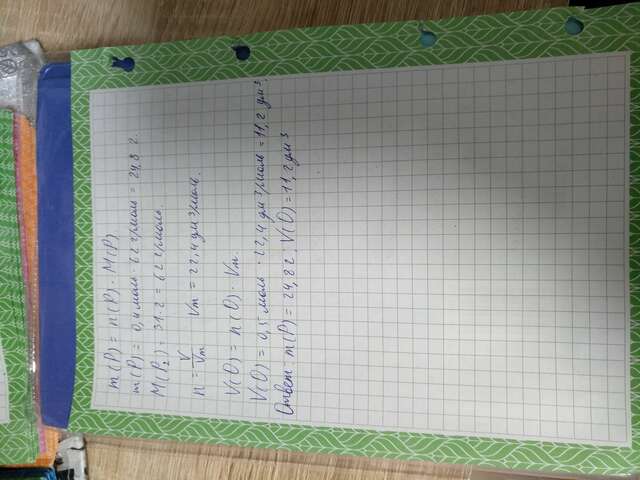 m(P) = n(P) · M(P)
m(P) = 0,4 моль · 62 г/моль = 24,8 г.
M(P₂) = 31·2 = 62 г/моль.
n = V/Vm Vm = 22,4 дм³/моль.
V(O) = n(O) · Vm
V(O) = 0,5 моль · 22,4 дм³/моль = 11,2 дм³.
Ответ: m(P) = 24,8 г; V(O) = 11,2 дм³